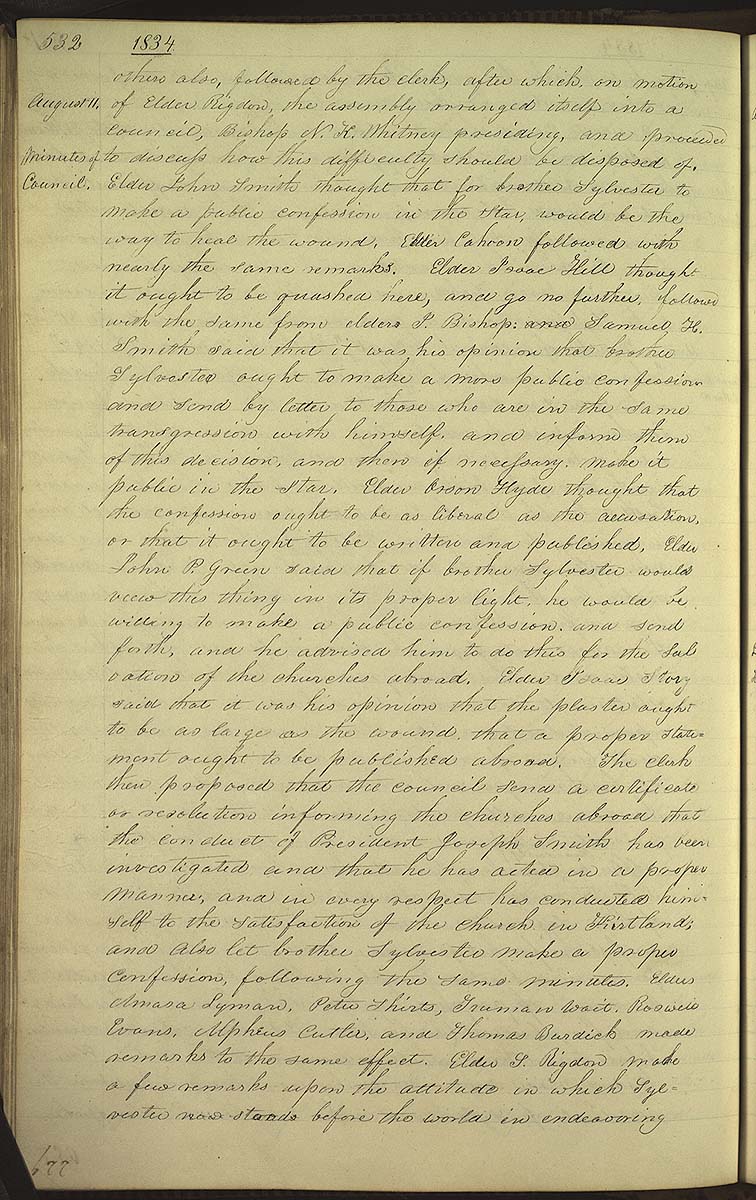 532 1834
others also, followed by the clerk, after which, on motion
August 11, of Elder Rigdon, the assembly arranged itself into a
council, Bishop N. K. Whitney presiding, and proceeded
Minutes of to discuss how this difficulty should be disposed of.
Council. Elder John Smith thought that for brother Sylvester to
make a public confession in the Star, would be the
way to heal the wound. Elder Cahoon followed with
nearly the same remarks. Elder Isaac Hill thought
it ought to be quashed here, and go no further, followed
with the same from elders I. Bishop: and Samuel H.
Smith said that it was his opinion that brother
Sylvester ought to make a more public confession
and send by letter to those who are in the same
transgression with himself, and inform them
of this decision, and then if necessary, make it
public in the Star. Elder Orson Hyde thought that
the confession ought to be as liberal as the accusation,
or that it ought to be written and published. Elder
John P. Green said that if brother Sylvester would
view this thing in its proper light, he would be
willing to make a public confession, and send
forth, and he advised him to do this for the sal
vation of the churches abroad. Elder Isaac Story
said that it was his opinion that the plaster ought
to be as large as the wound, that a proper state=
ment ought to be published abroad. The clerk
then proposed that the council send a certificate
or resolution informing the churches abroad that
the conduct of President Joseph Smith has been
investigated and that he has acted in a proper
manner, and in every respect has conducted him=
self to the satisfaction of the church in Kirtland;
and also let brother Sylvester make a proper
confession, following the same minutes. Elders
Amasa Lyman, Peter Shirts, Truman Wait, Roswell
Evans, Alpheus Cutler, and Thomas Burdick made
remarks to the same effect. Elder S. Rigdon made
a few remarks upon the attitude in which Syl=
vester now stands before the world in endeavoring